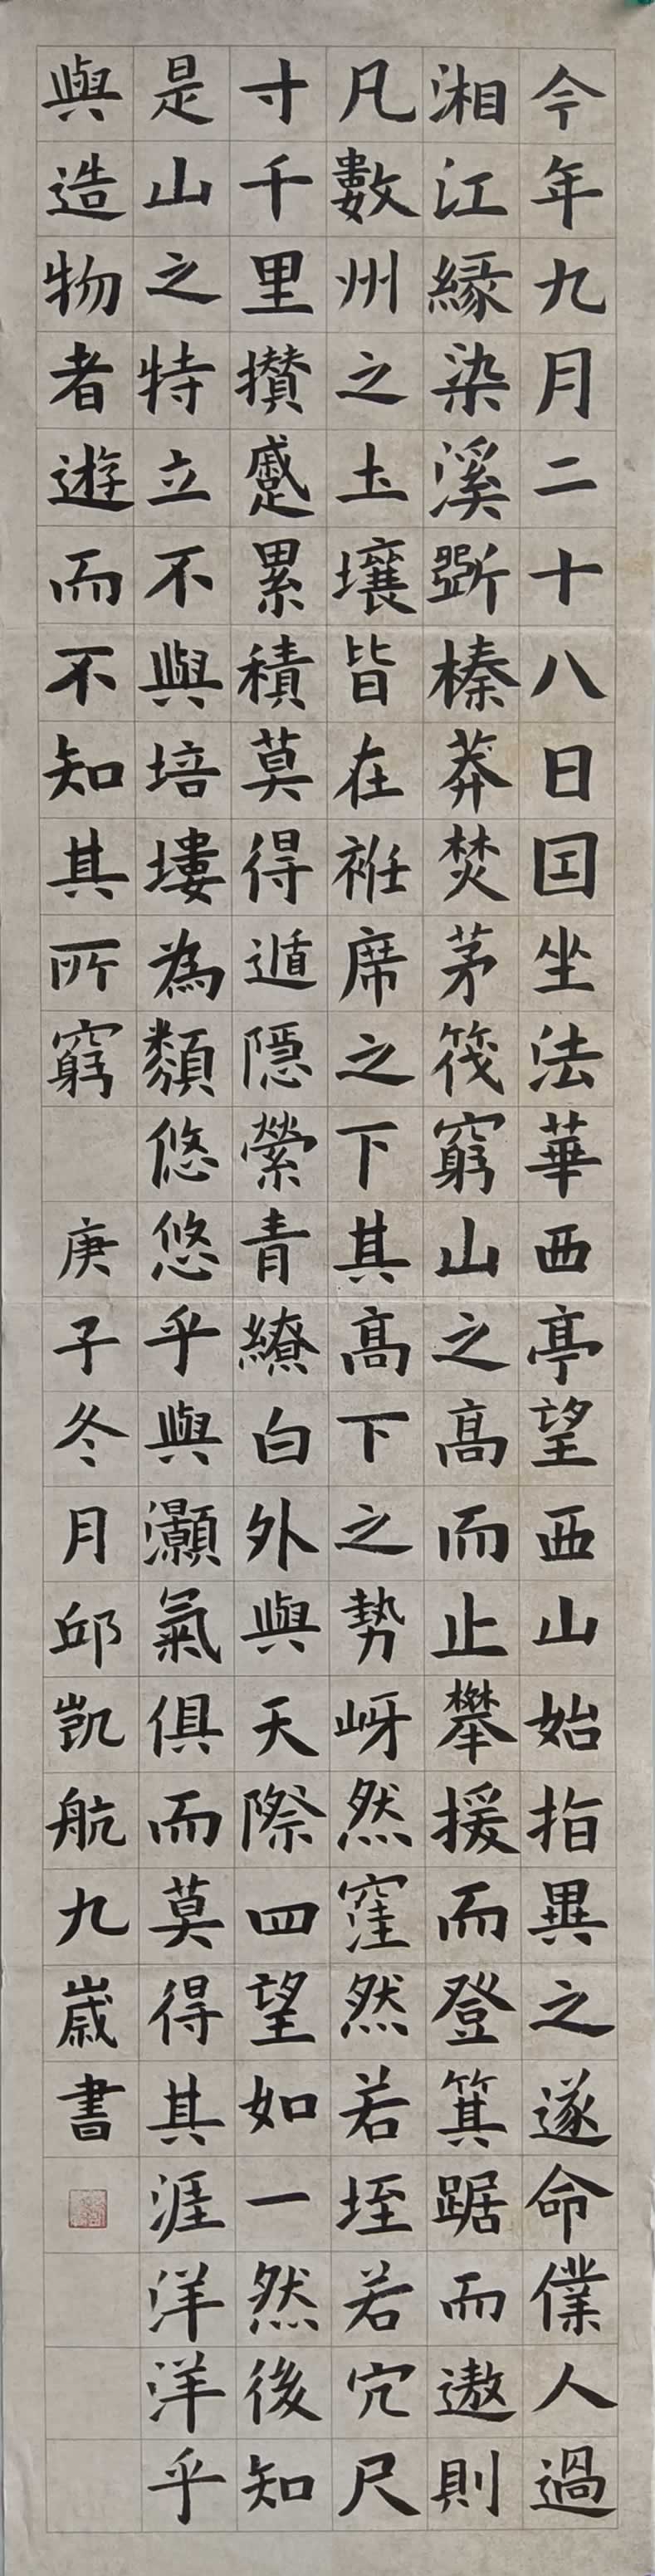 今年九月二十八日囙坐法華西亭望西山始指異之遂命僕人過
湘江緣染溪斲榛莽焚茅筏窮山之高而止攀援而登箕踞而遨則
凡數州之土壤皆在袵席之下其高下之勢岈然窪然若垤若穴尺
寸千里攢蹙累積莫得遁隱縈青繚白外與天際四望如一然後知
是山之特立不與培塿為類悠悠乎與灝氣俱而莫得其涯洋洋乎
與造物者遊而不知其所窮
庚子冬月邱凱航九歲書